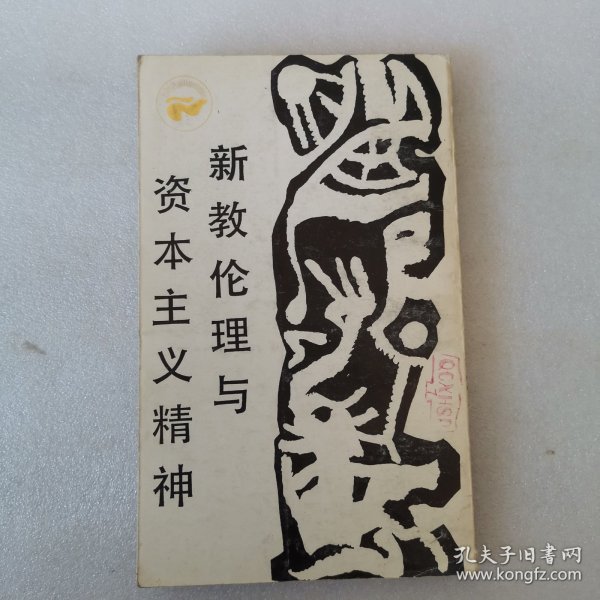 新教伦理与
资本主义精神
孔夫子旧书网
www.kongfz.com